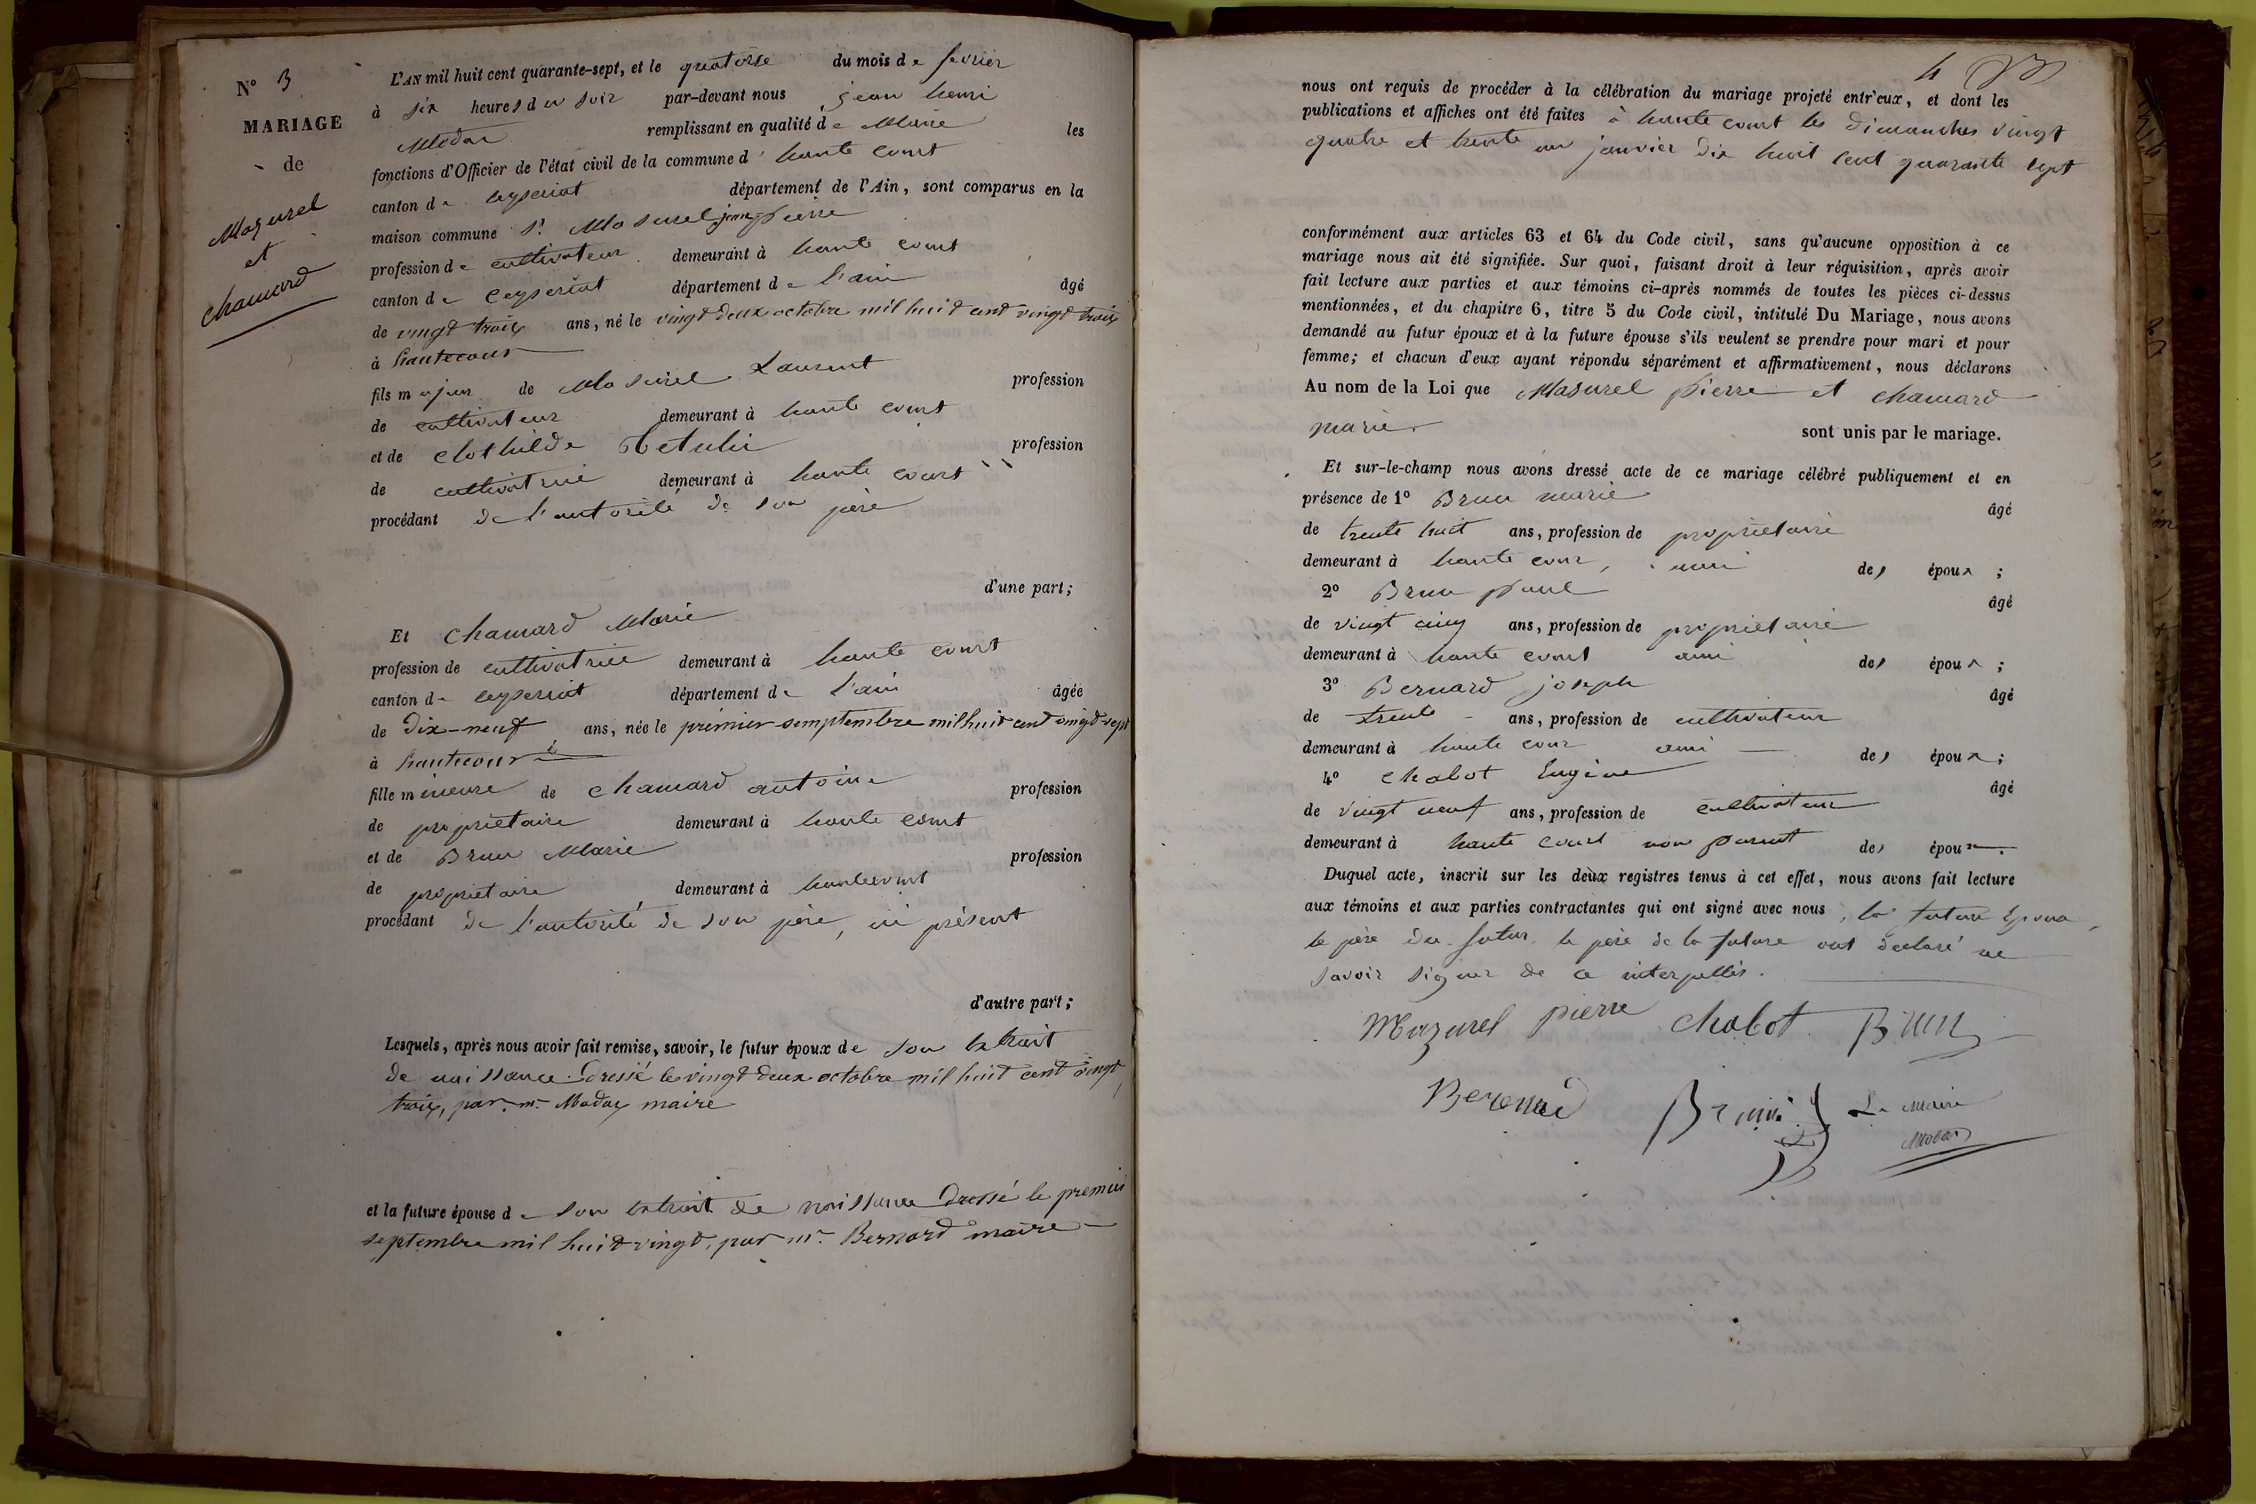 N° 3
MARIAGE
de
Mazurel
et
chamard
L'AN mil huit cent quarante-sept, et le quatorse du mois de fevrier
à six heures du soir par-devant nous jean henri
Modas remplissant en qualité de Maire les
fonctions d'Officier de l'état civil de la commune d' haute court
canton de ceyseriat département de l'Ain, sont comparus en la
maison commune Sr Masurel jean pierre
profession de cultivateur demeurant à haute court
canton de Ceyseriat département de l'ain âgé
de vingt troix ans, né le vingt deux octobre mil huit cent vingt troix
à hautecour
fils majeur de Masurel Laurent profession
de cultivateur demeurant à haute court
et de Clothilde profession
de cultivatrice demeurant à haute court
procédant de l'autorité de son père
d'une part;
Et Chamard Marie
profession de cultivatrice demeurant à haute court
canton de ceyseriat département de l'ain âgée
de Dix-neuf ans, née le premier semptembre mil huit cent vingt sept
à hautecour
fille mineure de chamard antoine profession
de propriétaire demeurant à haute court
et de Brun Marie profession
de propriétaire demeurant à hautecourt
procédant de l'autorité de son père, ici présent
d'autre part;
Lesquels, après nous avoir fait remise, savoir, le futur époux de son extrait
de naissance dressé le vingt deux octobre mil huit cent vingt
troix, par mr. Moday maire
et la future épouse de son extrait de naissance dressé le premier
septembre mil huit vingt, par mr. Bernard maire
4
nous ont requis de procéder à la célébration du mariage projeté entr'eux, et dont les
publications et affiches ont été faites à haute court les dimanches vingt
quatre et trente un janvier dix huit cent quarante sept
conformément aux articles 63 et 64 du Code civil, sans qu'aucune opposition à ce
mariage nous ait été signifiée. Sur quoi, faisant droit à leur réquisition, après avoir
fait lecture aux parties et aux témoins ci-après nommés de toutes les pièces ci-dessus
mentionnées, et du chapitre 6, titre 5 du Code civil, intitulé Du Mariage, nous avons
demandé au futur époux et à la future épouse s'ils veulent se prendre pour mari et pour
femme; et chacun d'eux ayant répondu séparément et affirmativement, nous déclarons
Au nom de la Loi que Masurel pierre et chamard
marie sont unis par le mariage.
Et sur-le-champ nous avons dressé acte de ce mariage célébré publiquement et en
présence de 1° Brun marie âgé
de trente huit ans, profession de propriétaire
demeurant à haute cour, ami des époux ;
2° Brun paul âgé
de vingt cinq ans, profession de propriétaire
demeurant à haute court ami des époux ;
3° Bernard joseph âgé
de trente ans, profession de cultivateur
demeurant à haute cour ami des époux ;
4° Chabot Eugène âgé
de vingt neuf ans, profession de cultivateur
demeurant à haute court non parent des époux.
Duquel acte, inscrit sur les deux registres tenus à cet effet, nous avons fait lecture
aux témoins et aux parties contractantes qui ont signé avec nous, la future épouse,
le père du futur le père de la future ont déclaré ne
savoir signer de ce interpellés.
Mazurel pierre Chabot Brun
Bernard Brun Le Maire
Modas